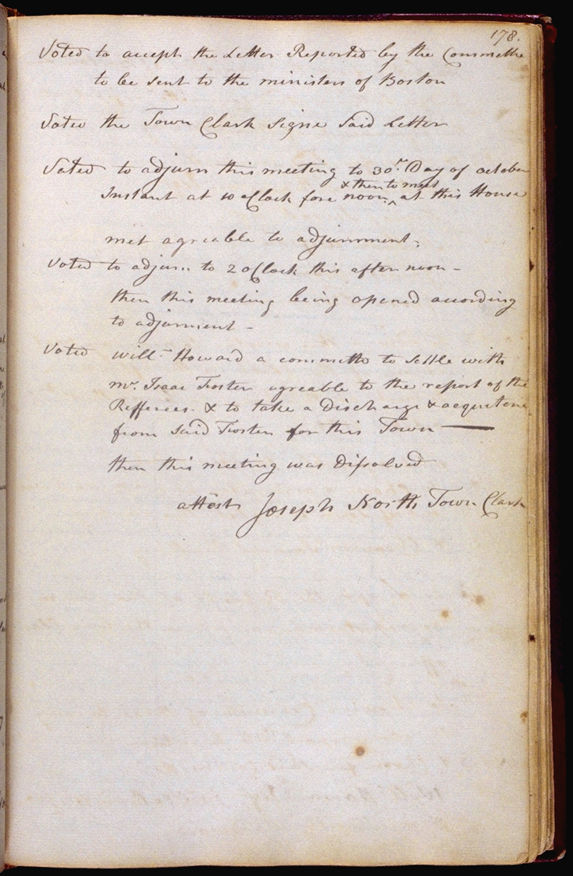 178.
Voted to accept the Letter Reported by the Committe
to be sent to the ministers of Boston
Voted the Town Clark signe said Letter
Voted to adjurn this meeting to 30th Day of october
& then to meet
Instant at 10 oClock fore noon ^ at this House
met agreable to adjurnment,
Voted to adjurn to 2 oClock this after noon -
then this meeting being opened according
to adjurment -
Voted will^m Howard a committe to settle with
mr. Isaac Foster agreable to the report of the
Refferees & to take a Discharge & acquitence
from said Foster for this Town —
then this meeting was Dissolved
attest Joseph North Town Clark